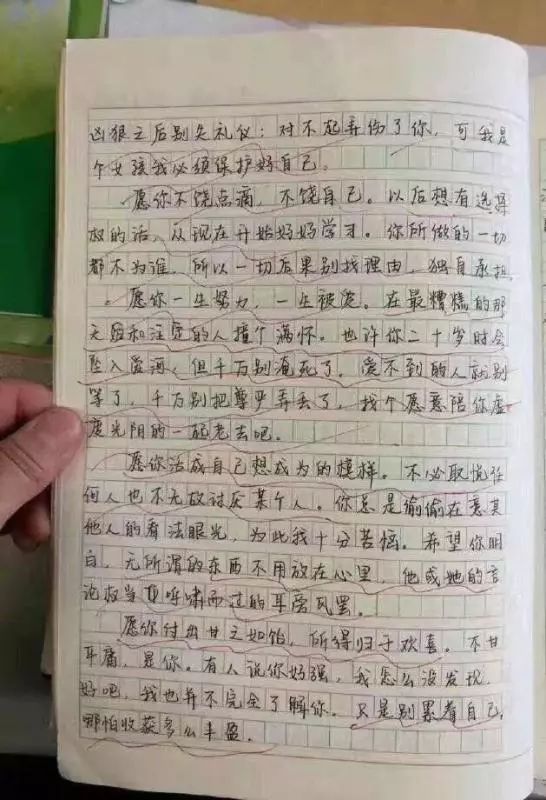 凶狠之后别失礼仪：对不起弄伤了你，可我是
个女孩我必须保护好自己。
愿你不饶点滴，不饶自己。以后想有选择
权的话，从现在开始好好学习。你所做的一切
都不为谁，所以一切后果别找理由，独自承担。
愿你一生努力，一生被爱。在最糟糕的那
天后和注定的人撞个满怀。也许你二十岁时会
坠入爱河，但千万别淹死了。爱不到的人就别
等了，千万别把尊严弄丢了，找个愿意陪你虚
度光阴的一起老去吧。
愿你活成自己想成为的模样。不必取悦任
何人也不无故讨厌某个人。你总是偷偷在意其
他人的看法眼光，为此我十分苦恼。希望你明
白，无所谓的东西不用放在心里，他或她的言
论权当呼啸而过的耳旁风罢。
愿你付出甘之如饴，所得归于欢喜。不甘
平庸，是你。有人说你好强，我怎么没发现，
好吧，我也并不完全了解你。只是别累着自己，
哪怕收获多么丰盈。